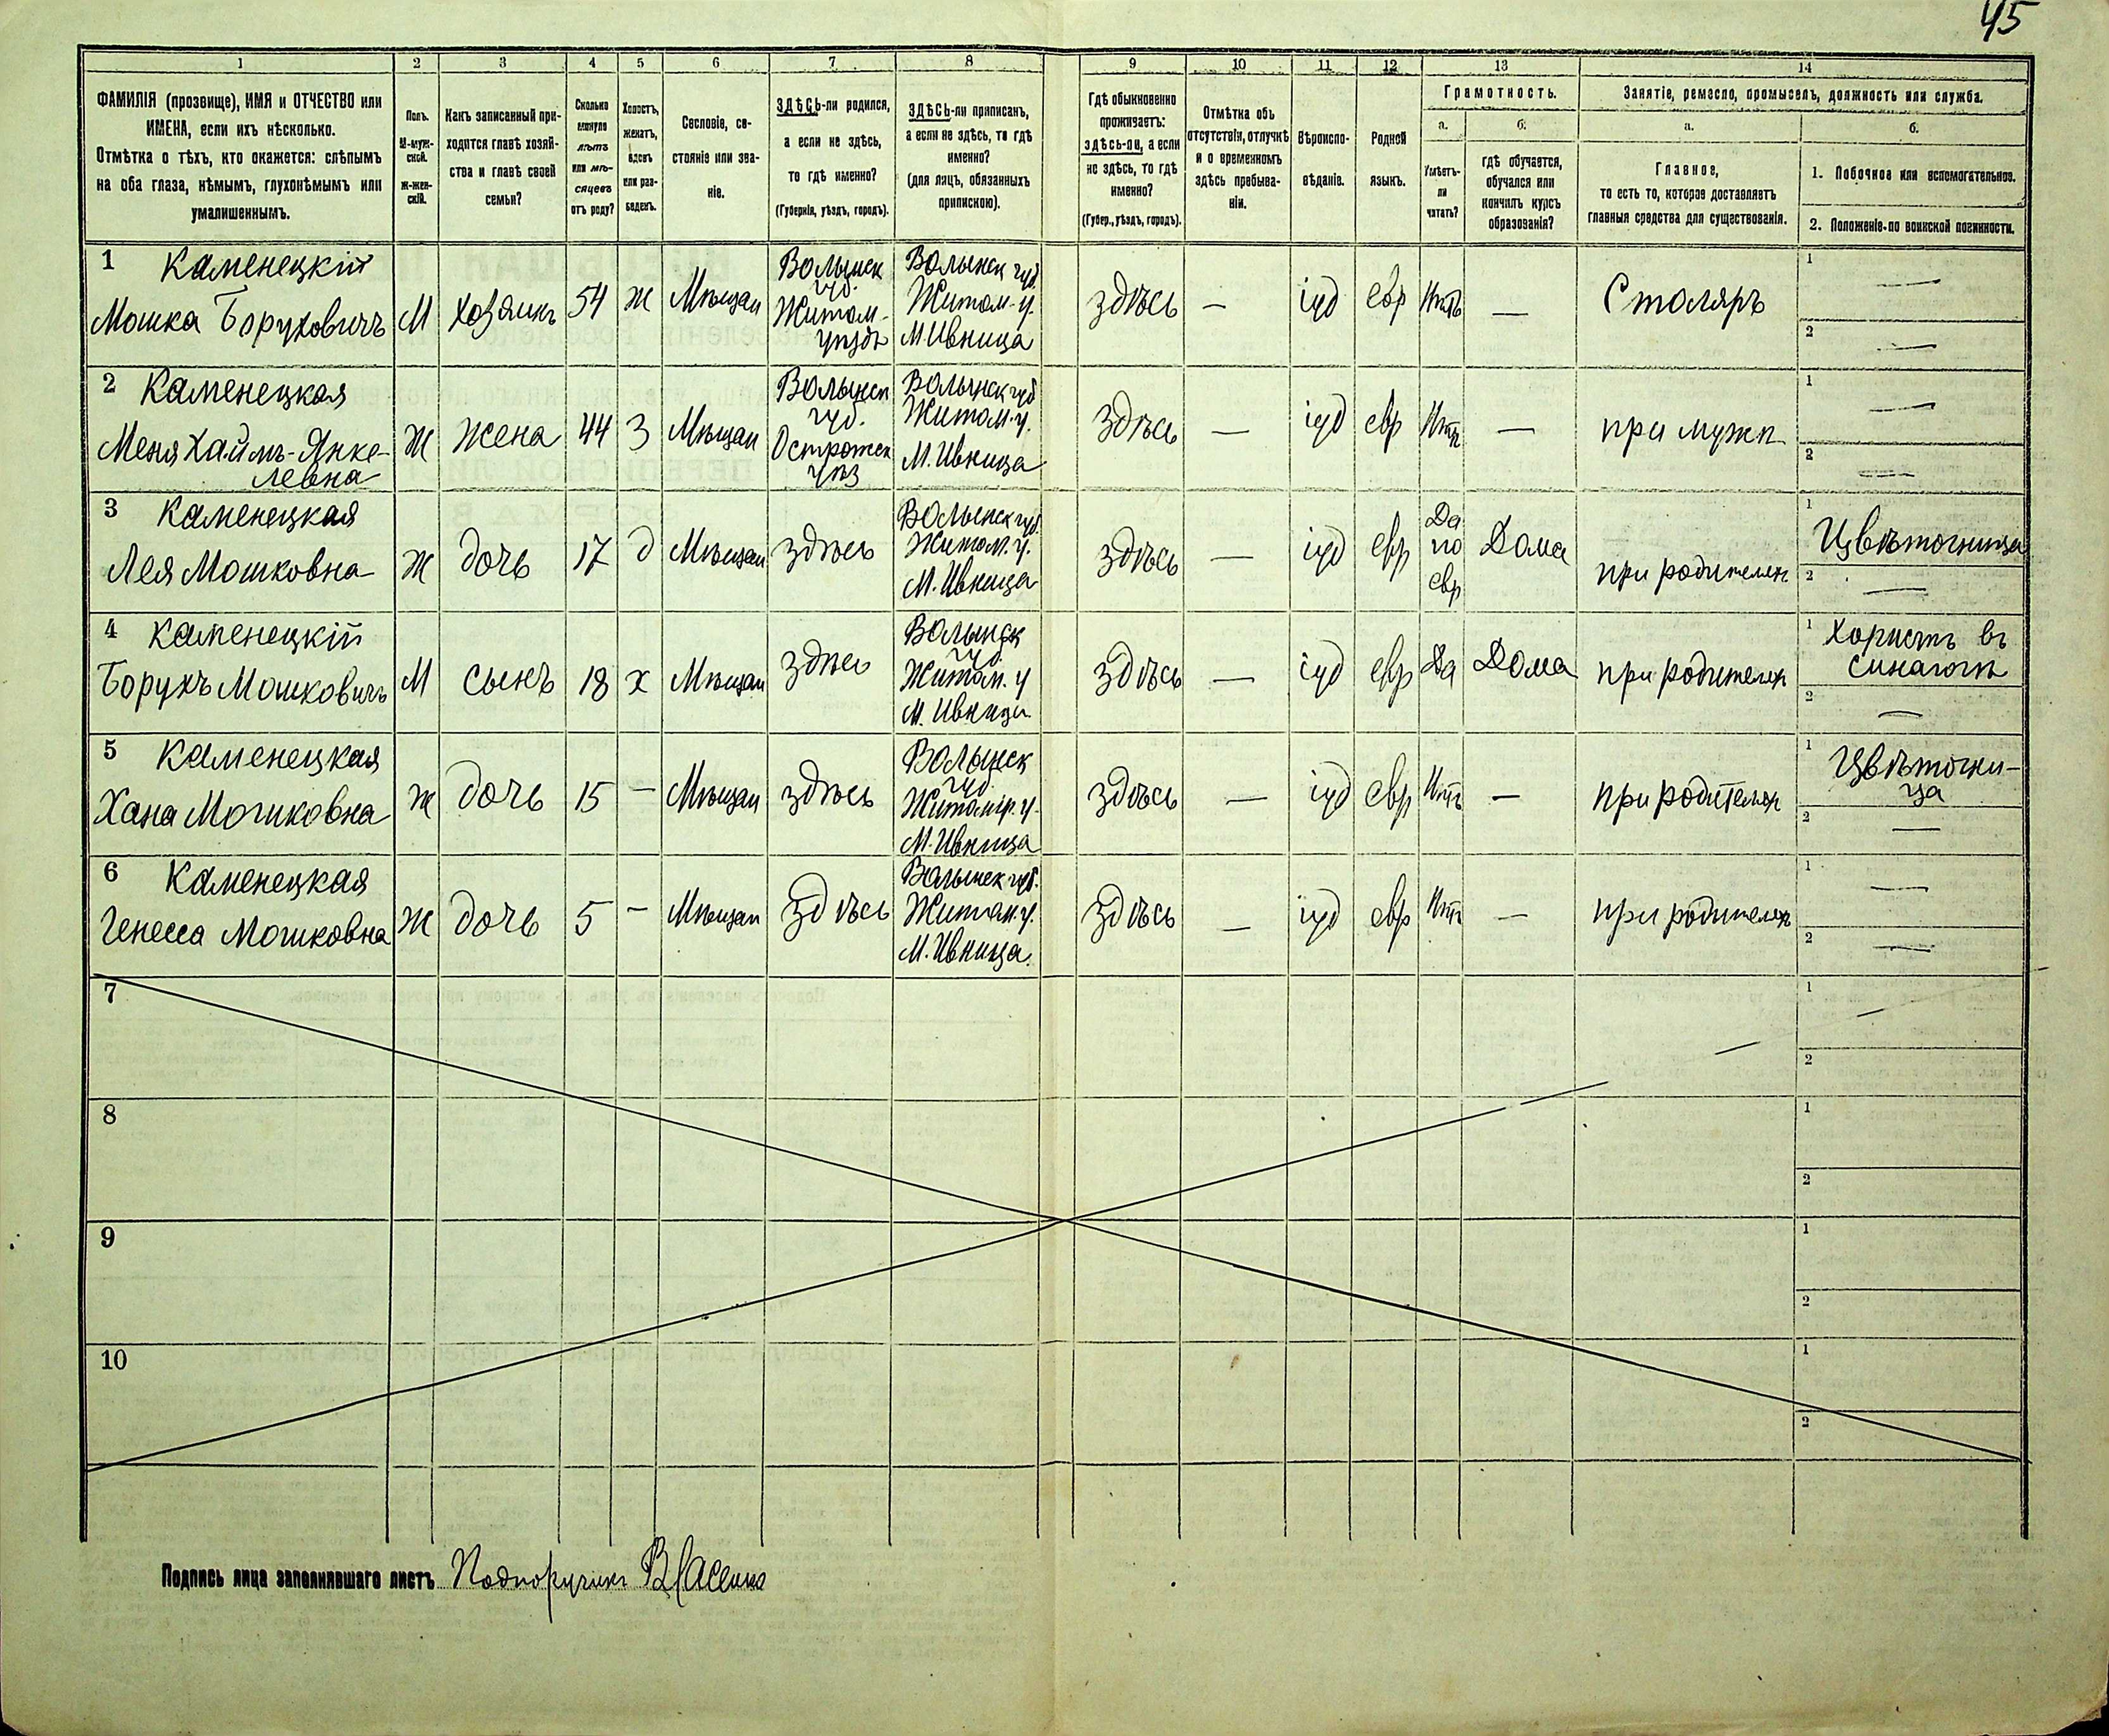 45
1 2 3 4 5 6 7 8 9 10 11 12 13 14
ФАМИЛІЯ (прозвище), ИМЯ и ОТЧЕСТВО или
ИМЕНА, если ихъ нѣсколько.
Отмѣтка о тѣхъ, кто окажется: слѣпымъ
на оба глаза, нѣмымъ, глухонѣмымъ или
умалишеннымъ.
Полъ.
М-муж-
ской.
ж-жен-
скій.
Какъ записанный при-
ходится главѣ хозяй-
ства и главѣ своей
семьи?
Сколько
минуло
лѣтъ
или мѣ-
сяцевъ
отъ роду?
Холостъ,
женатъ,
вдовъ
или раз-
веденъ.
Сословіе, со-
стояніе или зва-
ніе.
ЗДѢСЬ-ли родился,
а если не здѣсь,
то гдѣ именно?
(Губернія, уѣздъ, городъ).
ЗДѢСЬ-ли приписанъ,
а если не здѣсь, то гдѣ
именно?
(для лицъ, обязанныхъ
припискою).
Гдѣ обыкновенно
проживаетъ:
здѣсь-ли, а если
не здѣсь, то гдѣ
именно?
(Губер., уѣздъ, городъ).
Отмѣтка объ
отсутствіи, отлучкѣ
и о временномъ
здѣсь пребыва-
ніи.
Вѣроиспо-
вѣданіе.
Родной
языкъ.
Грамотность.
а.
Умѣетъ-
ли
читать?
б.
гдѣ обучается,
обучался или
кончилъ курсъ
образованія?
Занятіе, ремесло, промыселъ, должность или служба.
а.
Главное,
то есть то, которое доставляетъ
главныя средства для существованія.
б.
1. Побочное или вспомогательное.
2. Положеніе по воинской повинности.
1 Каменецкій
Мошка Боруховичъ
М
Хозяинъ
54
ж
Мѣщан
Волынск
губ.
Житом-
уѣздъ
Волынск губ.
Житом. у.
М. Ивница
здѣсь
—
іуд
евр
Нѣтъ
—
Столяръ
1 —
2 —
2 Каменецкая
Меня Хаймъ-Янке-
левна
Ж
жена
44
З
Мѣщан
Волынск
губ.
Острожск
уѣз
Волынск губ
Житом. у.
М. Ивница
Здѣсь
—
іуд
евр
Нѣтъ
—
при мужѣ
1 —
2 —
3 Каменецкая
Лея Мошковна
Ж
дочь
17
д
Мѣщан
здѣсь
Волынск губ.
Житом. у.
М. Ивница
здѣсь
—
іуд
евр
Да
по
евр
Дома
при родителях
1 Цвѣточница
2 —
4 Каменецкій
Борухъ Мошковичъ
М
сынъ
18
х
Мѣщан
здѣсь
Волынск
губ.
Житом. у
М. Ивница
здѣсь
—
іуд
евр
Да
Дома
при родителях
1 Хористъ въ
синагогѣ
2 —
5 Каменецкая
Хана Мошковна
ж
дочь
15
—
Мѣщан
здѣсь
Волынск
губ.
Житомір. у.
М. Ивница
здѣсь
—
іуд
евр
Нѣтъ
—
при родителях
1 Цвѣточни-
ца
2 —
6 Каменецкая
Генесса Мошковна
Ж
дочь
5
—
Мѣщан
Здѣсь
Волынск губ.
Житом. у.
М. Ивница.
здѣсь
—
іуд
евр
Нѣтъ
—
при родителях
1 —
2 —
7
1 —
2
8
1
2
9
1
2
10
1
2
Подпись лица заполнявшаго листъ Подпоручикъ